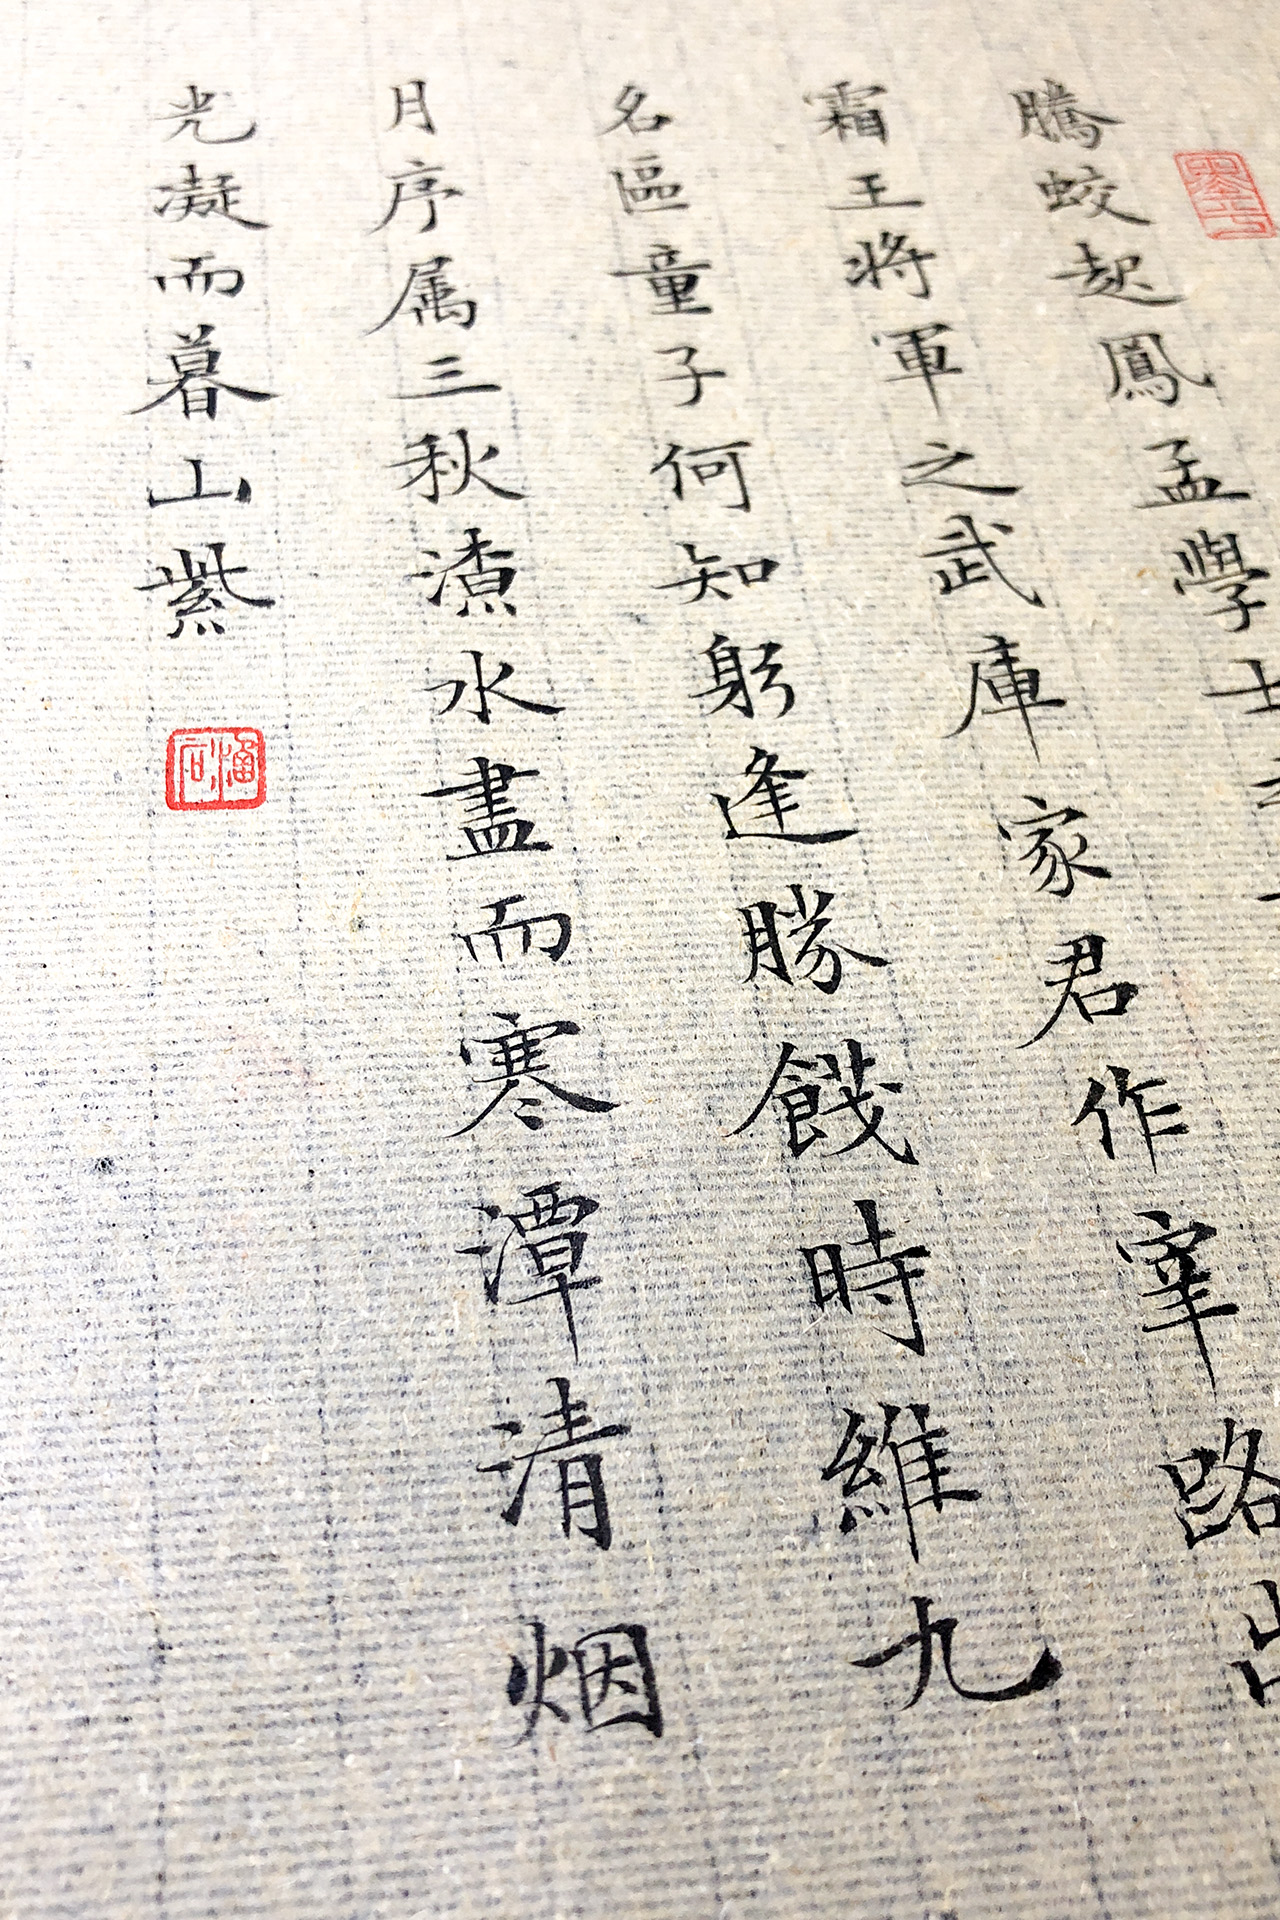 騰蛟起鳳孟學士
霜王將軍之武庫家君作宰路出
名區童子何知躬逢勝餞時維九
月序属三秋潦水盡而寒潭清烟
光凝而暮山紫